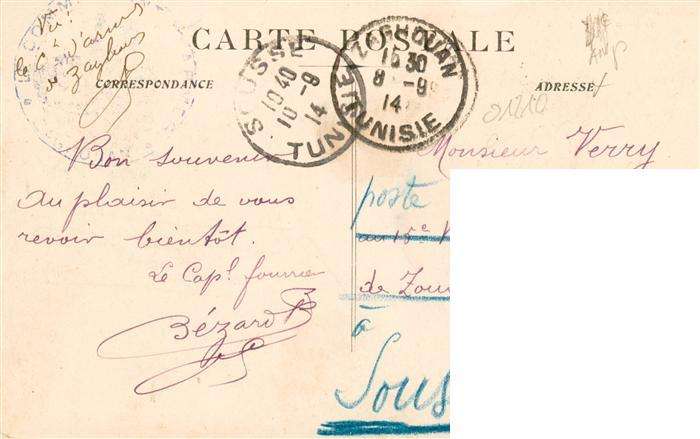 Vu!
le Ct d'armes
de Zaghouan
CARTE POSTALE
CORRESPONDANCE
ADRESSE
SOUSSE
10 40
10 - 9
14
TUNISIE
ZAGHOUAN
10 30
8 - 9
14
TUNISIE
01210
Bon souvenir
au plaisir de vous
revoir bientôt.
Le Capl fourrier
Bézard
Monsieur Verry
poste
au 15e
de Zou
à
Sous